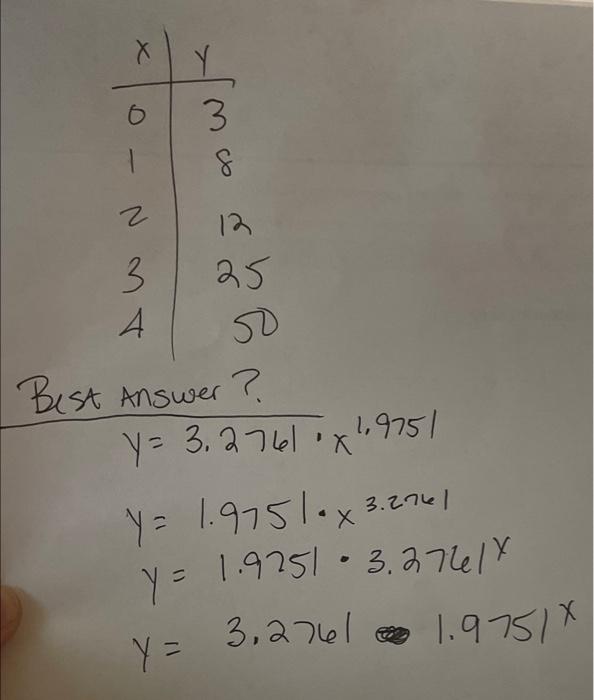 x y
0 3
1 8
2 12
3 25
4 50
Best Answer?
y = 3.2761 · x^1.9751
y = 1.9751 · x^3.2761
y = 1.9751 · 3.2761^x
y = 3.2761 1.9751^x